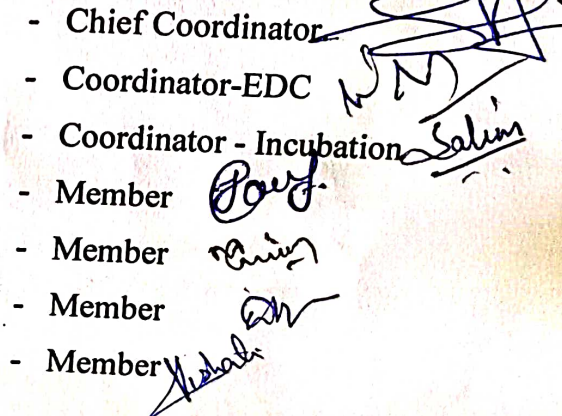 - Chief Coordinator
- Coordinator-EDC
- Coordinator - Incubation Salim
- Member
- Member
- Member
- Member